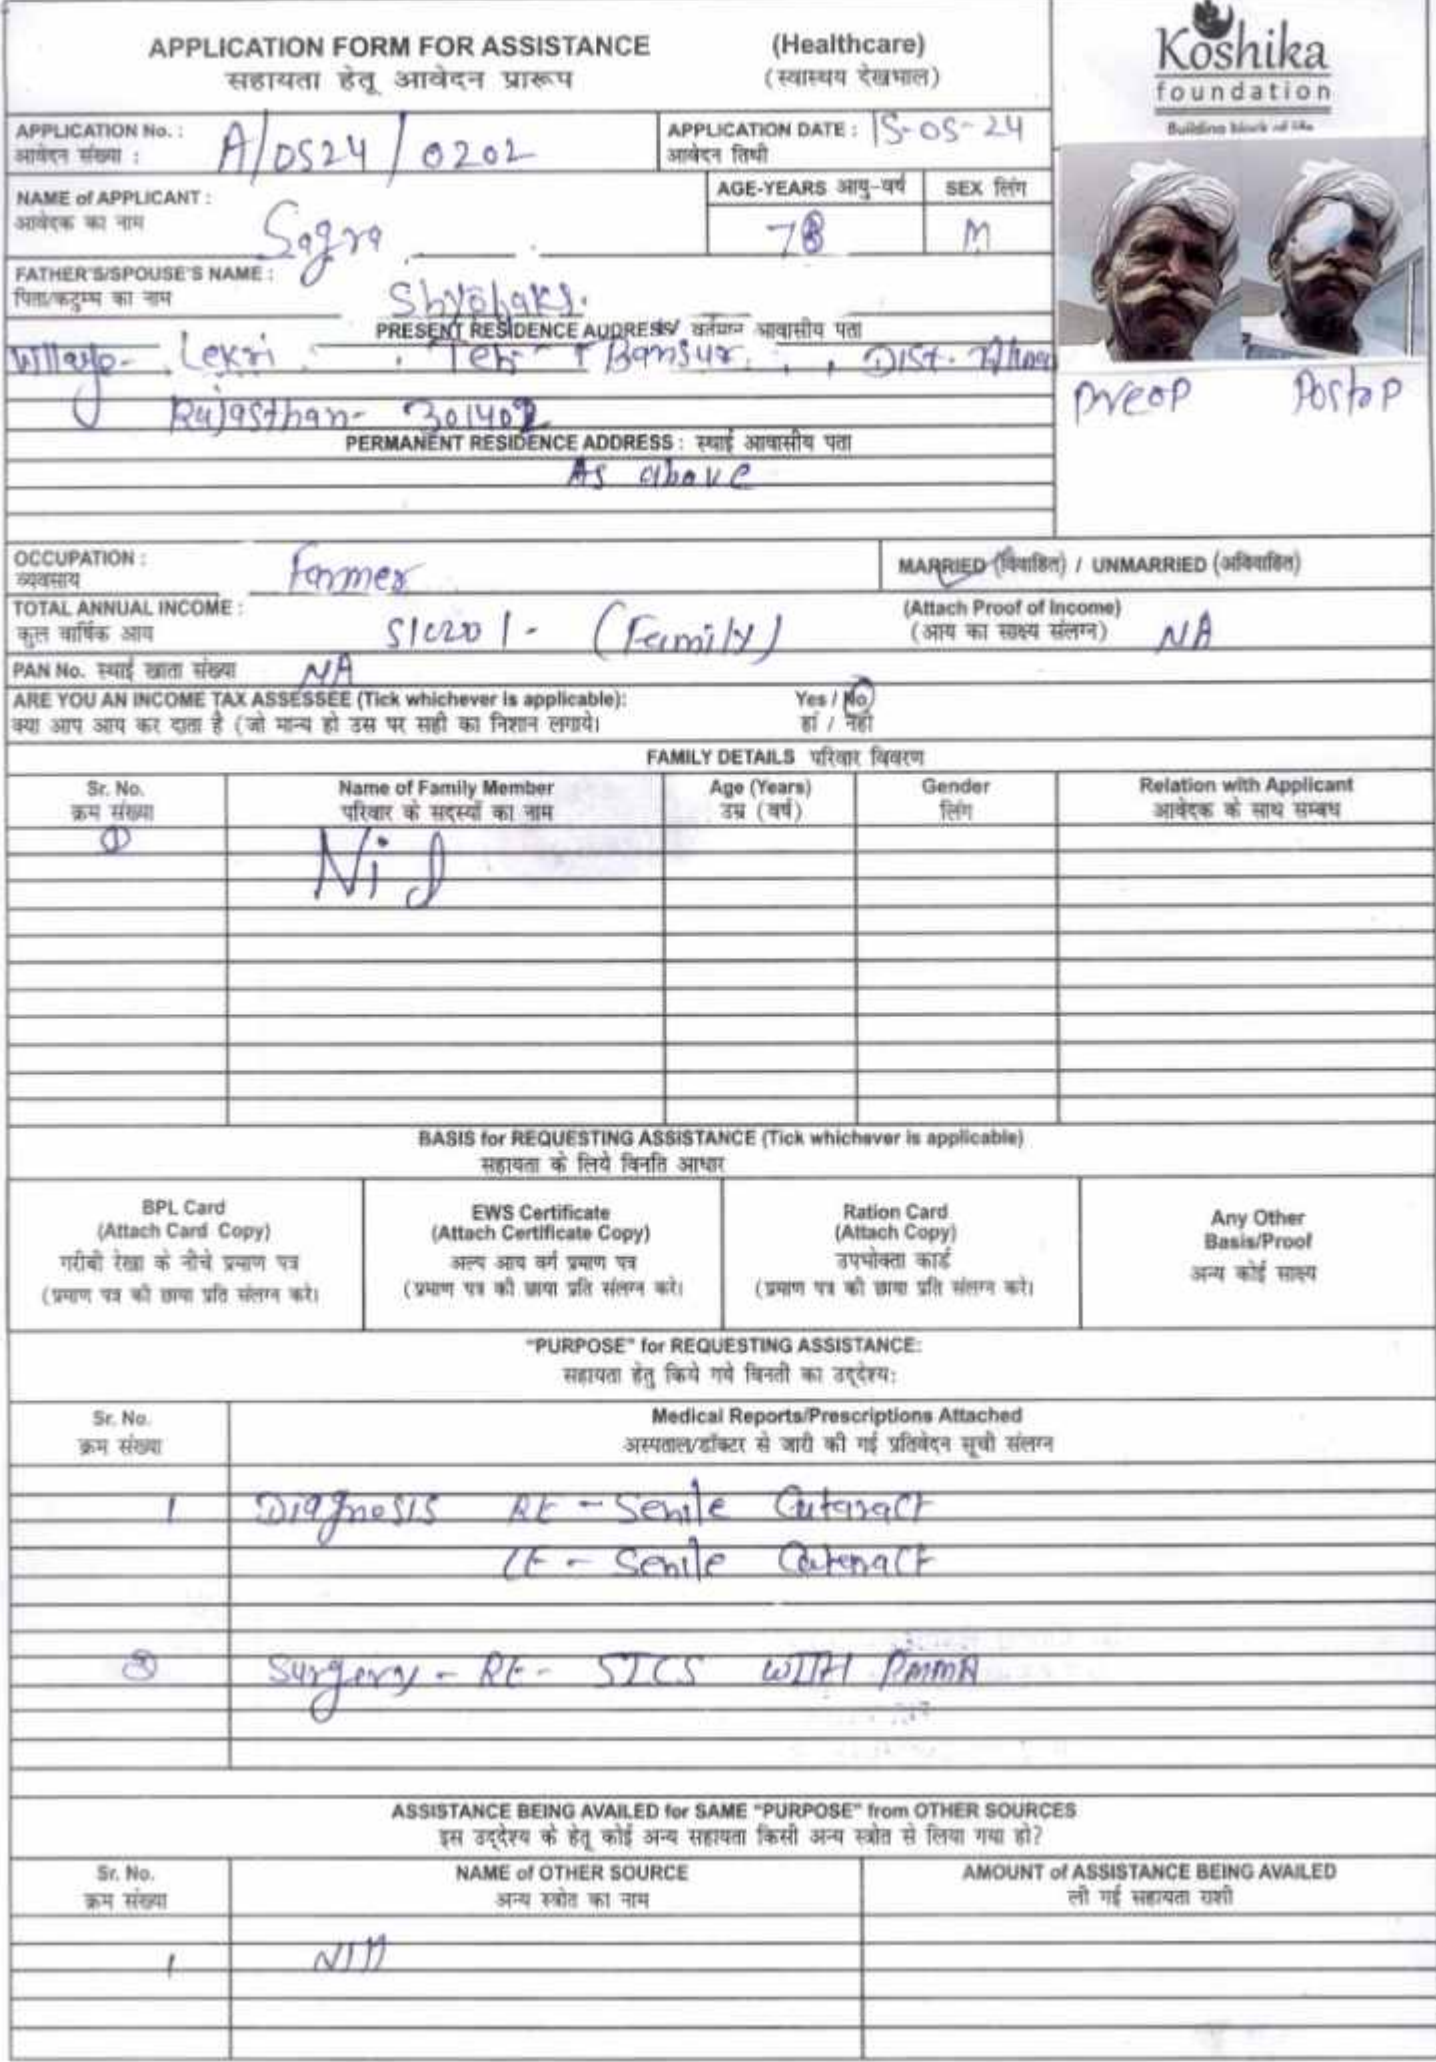 APPLICATION FORM FOR ASSISTANCE (Healthcare)
सहायता हेतू आवेदन प्रारूप (स्वास्थय देखभाल)
Koshika
foundation
Building block of life
APPLICATION No. : A/0524/0202 APPLICATION DATE : 15-05-24
आवेदन संख्या : आवेदन तिथी
NAME of APPLICANT : Sagra AGE-YEARS आयु-वर्ष 78 SEX लिंग M
आवेदक का नाम
FATHER'S/SPOUSE'S NAME :
पिता/कटुम्म का नाम
PRESENT RESIDENCE ADDRESS/ वर्तमान आवासीय पता
Village- Lekri Teh- Bansur, Dist.
Rajasthan- 301402
preop Postop
PERMANENT RESIDENCE ADDRESS : स्थाई आवासीय पता
As above
OCCUPATION : Farmer MARRIED (विवाहित) / UNMARRIED (अविवाहित)
व्यवसाय
TOTAL ANNUAL INCOME : (Family) (Attach Proof of Income) NA
कुल वार्षिक आय (आय का साक्ष्य संलग्न)
PAN No. स्थाई खाता संख्या NA
ARE YOU AN INCOME TAX ASSESSEE (Tick whichever is applicable): Yes / No
क्या आप आय कर दाता है (जो मान्य हो उस पर सही का निशान लगाये। हां / नहीं
FAMILY DETAILS परिवार विवरण
Sr. No. Name of Family Member Age (Years) Gender Relation with Applicant
क्रम संख्या परिवार के सदस्यों का नाम उम्र (वर्ष) लिंग आवेदक के साथ सम्बध
1 Nil
BASIS for REQUESTING ASSISTANCE (Tick whichever is applicable)
सहायता के लिये विनति आधार
BPL Card
(Attach Card Copy)
गरीबी रेखा के नीचे प्रमाण पत्र
(प्रमाण पत्र की छाया प्रति संलग्न करे।
EWS Certificate
(Attach Certificate Copy)
अल्प आय वर्ग प्रमाण पत्र
(प्रमाण पत्र की छाया प्रति संलग्न करे।
Ration Card
(Attach Copy)
उपभोक्ता कार्ड
(प्रमाण पत्र की छाया प्रति संलग्न करे।
Any Other
Basis/Proof
अन्य कोई साक्ष्य
"PURPOSE" for REQUESTING ASSISTANCE:
सहायता हेतु किये गये विनती का उद्देश्य:
Sr. No. Medical Reports/Prescriptions Attached
क्रम संख्या अस्पताल/डॉक्टर से जारी की गई प्रतिवेदन सूची संलग्न
1 Diagnosis RE - Senile Cataract
LE - Senile Cataract
2 Surgery - RE - SICS WITH PMMA
ASSISTANCE BEING AVAILED for SAME "PURPOSE" from OTHER SOURCES
इस उद्देश्य के हेतू कोई अन्य सहायता किसी अन्य स्त्रोत से लिया गया हो?
Sr. No. NAME of OTHER SOURCE AMOUNT of ASSISTANCE BEING AVAILED
क्रम संख्या अन्य स्त्रोत का नाम ली गई सहायता राशी
1